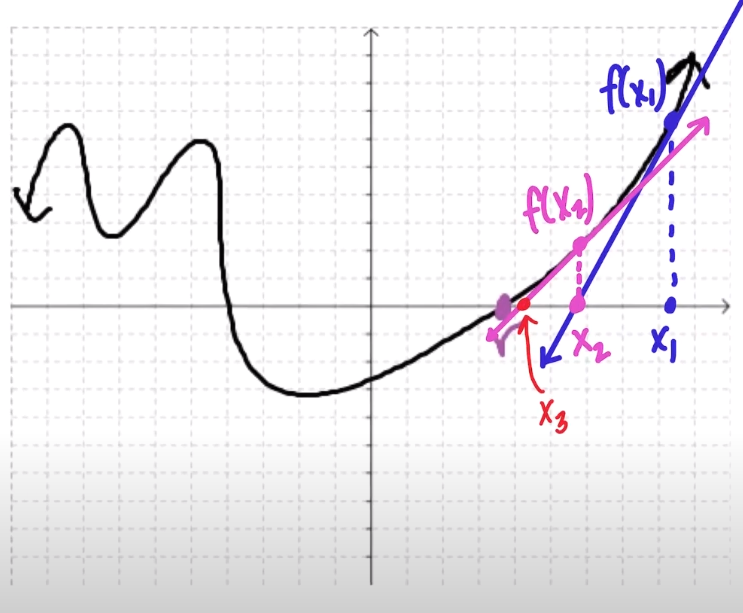 f(x₁)
f(x₂)
r
x₂
x₁
x₃